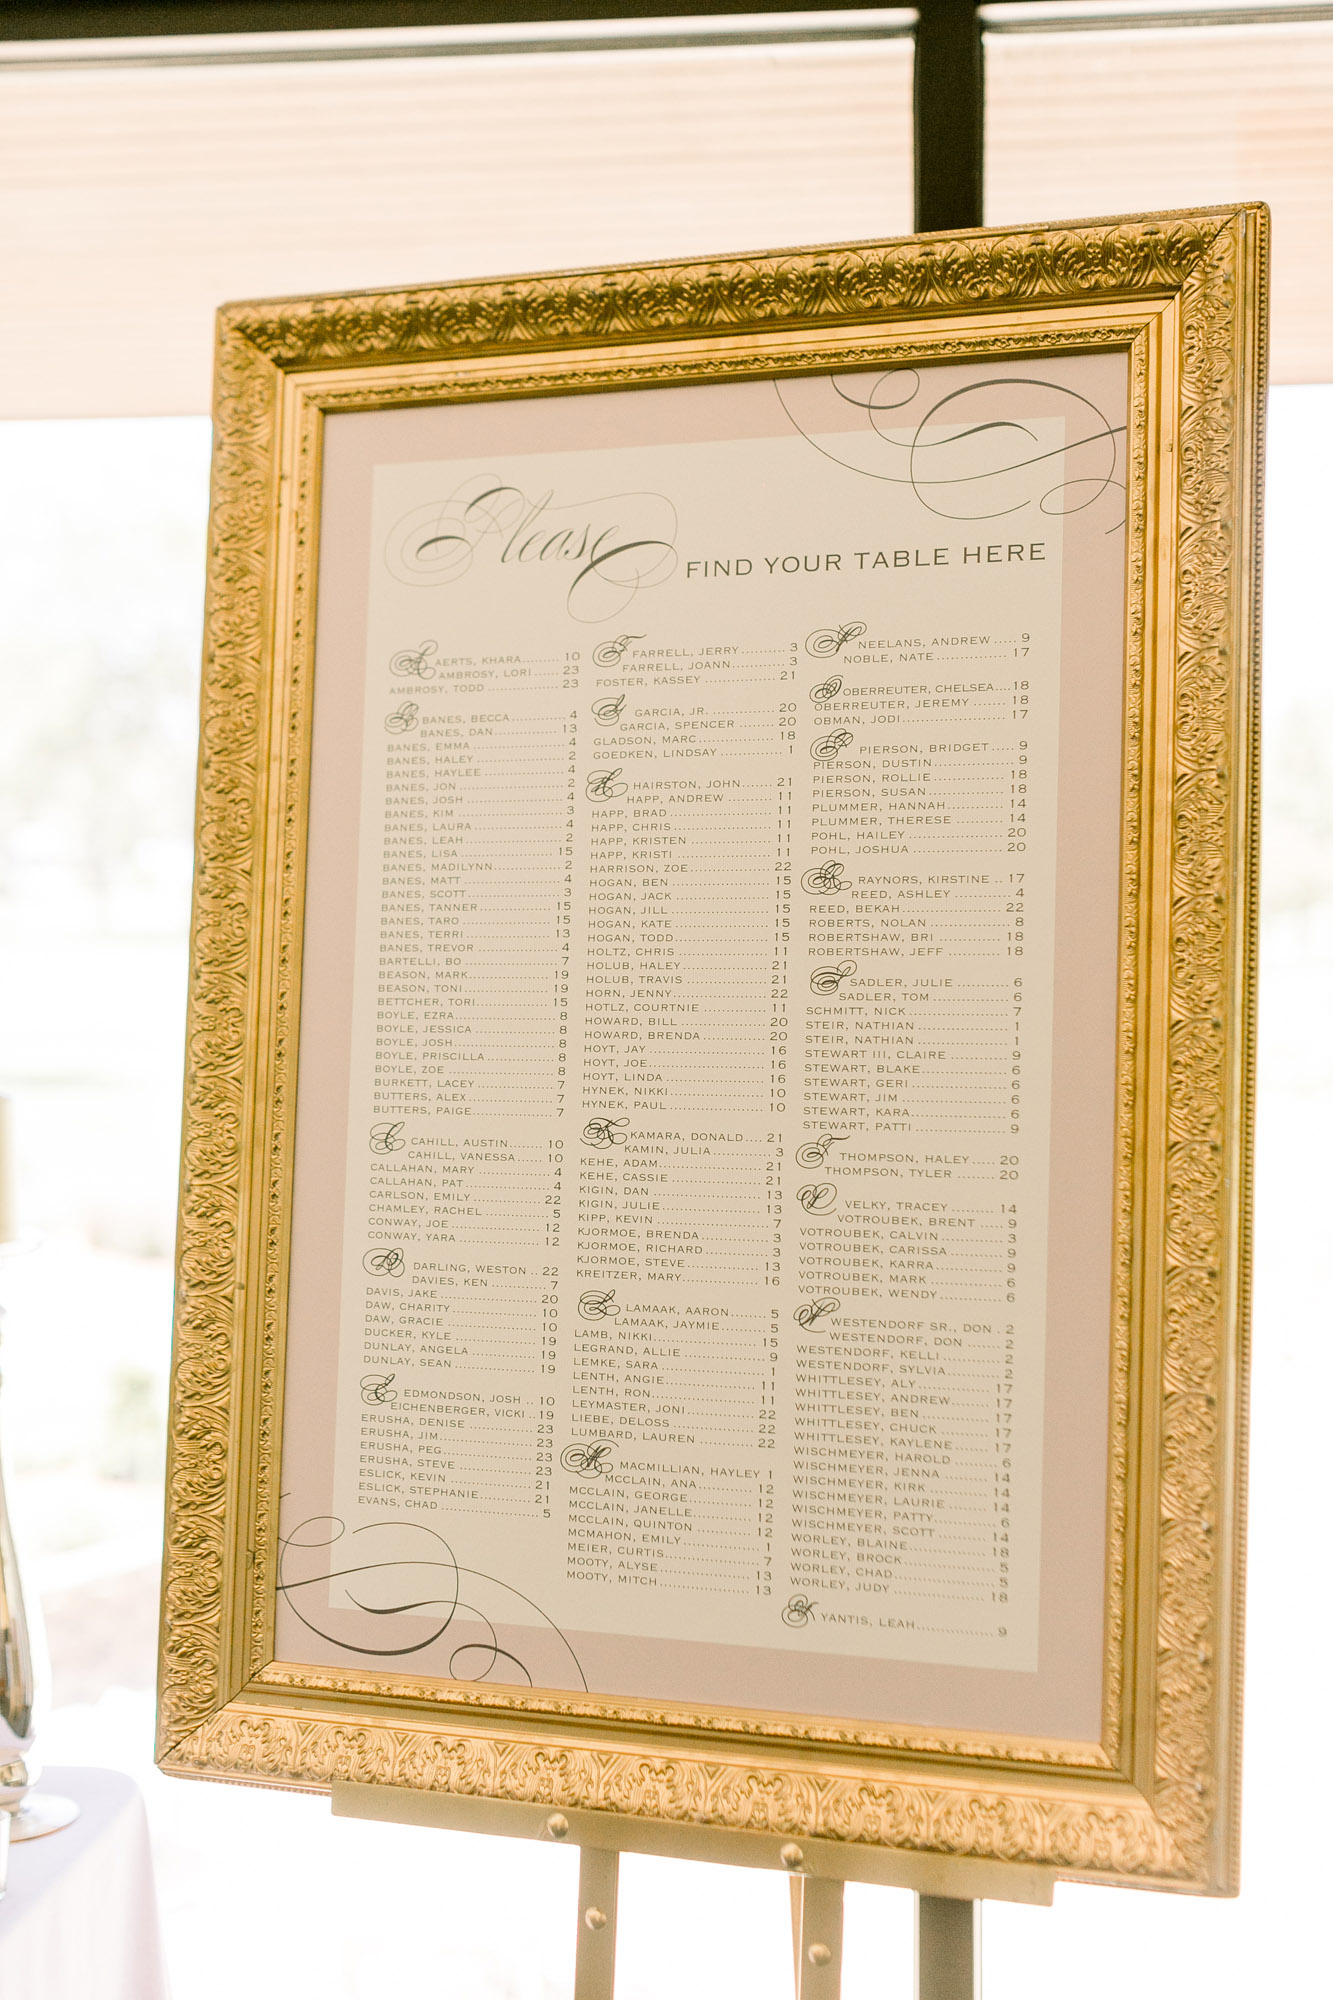 Please FIND YOUR TABLE HERE
A
AERTS, KHARA......... 10
AMBROSY, LORI ...... 23
AMBROSY, TODD ................ 23
B
BANES, BECCA............. 4
BANES, DAN................ 13
BANES, EMMA ...................... 4
BANES, HALEY ..................... 2
BANES, HAYLEE .................. 4
BANES, JON ......................... 2
BANES, JOSH ....................... 4
BANES, KIM .......................... 3
BANES, LAURA .................... 4
BANES, LEAH ....................... 2
BANES, LISA ....................... 15
BANES, MADILYNN.............. 2
BANES, MATT ....................... 4
BANES, SCOTT..................... 3
BANES, TANNER ................ 15
BANES, TARO ..................... 15
BANES, TERRI .................... 13
BANES, TREVOR .................. 4
BARTELLI, BO ...................... 7
BEASON, MARK................. 19
BEASON, TONI................... 19
BETTCHER, TORI............... 15
BOYLE, EZRA....................... 8
BOYLE, JESSICA ................. 8
BOYLE, JOSH....................... 8
BOYLE, PRISCILLA.............. 8
BOYLE, ZOE ........................ 8
BURKETT, LACEY ................ 7
BUTTERS, ALEX .................. 7
BUTTERS, PAIGE................. 7
C
CAHILL, AUSTIN........ 10
CAHILL, VANESSA...... 10
CALLAHAN, MARY ............... 4
CALLAHAN, PAT .................. 4
CARLSON, EMILY .............. 22
CHAMLEY, RACHEL ............. 5
CONWAY, JOE ................... 12
CONWAY, YARA ................. 12
D
DARLING, WESTON .. 22
DAVIES, KEN ............. 7
DAVIS, JAKE ..................... 20
DAW, CHARITY .................. 10
DAW, GRACIE ................... 10
DUCKER, KYLE ................. 19
DUNLAY, ANGELA .............. 19
DUNLAY, SEAN .................. 19
E
EDMONDSON, JOSH .. 10
EICHENBERGER, VICKI .. 19
ERUSHA, DENISE .............. 23
ERUSHA, JIM..................... 23
ERUSHA, PEG.................... 23
ERUSHA, STEVE ............... 23
ESLICK, KEVIN .................. 21
ESLICK, STEPHANIE........... 21
EVANS, CHAD ..................... 5
F
FARRELL, JERRY.......... 3
FARRELL, JOANN............ 3
FOSTER, KASSEY ................ 21
G
GARCIA, JR. .............. 20
GARCIA, SPENCER ........ 20
GLADSON, MARC ................. 18
GOEDKEN, LINDSAY ............. 1
H
HAIRSTON, JOHN....... 21
HAPP, ANDREW ........... 11
HAPP, BRAD ........................ 11
HAPP, CHRIS....................... 11
HAPP, KRISTEN ................... 11
HAPP, KRISTI ...................... 11
HARRISON, ZOE................... 22
HOGAN, BEN ....................... 15
HOGAN, JACK ..................... 15
HOGAN, JILL ....................... 15
HOGAN, KATE ..................... 15
HOGAN, TODD..................... 15
HOLTZ, CHRIS ..................... 11
HOLUB, HALEY.................... 21
HOLUB, TRAVIS ................... 21
HORN, JENNY...................... 22
HOTLZ, COURTNIE .............. 11
HOWARD, BILL .................... 20
HOWARD, BRENDA .............. 20
HOYT, JAY ........................... 16
HOYT, JOE........................... 16
HOYT, LINDA ....................... 16
HYNEK, NIKKI ..................... 10
HYNEK, PAUL ...................... 10
K
KAMARA, DONALD.... 21
KAMIN, JULIA ............. 3
KEHE, ADAM....................... 21
KEHE, CASSIE .................... 21
KIGIN, DAN ........................ 13
KIGIN, JULIE ...................... 13
KIPP, KEVIN ........................ 7
KJORMOE, BRENDA ............ 3
KJORMOE, RICHARD ........... 3
KJORMOE, STEVE .............. 13
KREITZER, MARY................ 16
L
LAMAAK, AARON....... 5
LAMAAK, JAYMIE....... 5
LAMB, NIKKI...................... 15
LEGRAND, ALLIE ................. 9
LEMKE, SARA ..................... 1
LENTH, ANGIE.................... 11
LENTH, RON....................... 11
LEYMASTER, JONI .............. 22
LIEBE, DELOSS .................. 22
LUMBARD, LAUREN ............ 22
M
MACMILLIAN, HAYLEY 1
MCCLAIN, ANA........... 12
MCCLAIN, GEORGE............. 12
MCCLAIN, JANELLE............. 12
MCCLAIN, QUINTON ........... 12
MCMAHON, EMILY .............. 1
MEIER, CURTIS................... 7
MOOTY, ALYSE ................... 13
MOOTY, MITCH ................... 13
N
NEELANS, ANDREW ..... 9
NOBLE, NATE ................ 17
O
OBERREUTER, CHELSEA.... 18
OBERREUTER, JEREMY ....... 18
OBMAN, JODI....................... 17
P
PIERSON, BRIDGET ..... 9
PIERSON, DUSTIN................ 9
PIERSON, ROLLIE ................ 18
PIERSON, SUSAN ................. 18
PLUMMER, HANNAH............. 14
PLUMMER, THERESE ........... 14
POHL, HAILEY ..................... 20
POHL, JOSHUA .................... 20
R
RAYNORS, KIRSTINE .. 17
REED, ASHLEY ............. 4
REED, BEKAH...................... 22
ROBERTS, NOLAN ............... 8
ROBERTSHAW, BRI .............. 18
ROBERTSHAW, JEFF ............ 18
S
SADLER, JULIE .......... 6
SADLER, TOM ............. 6
SCHMITT, NICK ................... 7
STEIR, NATHIAN .................. 1
STEIR, NATHIAN .................. 1
STEWART III, CLAIRE ........... 9
STEWART, BLAKE................. 6
STEWART, GERI ................... 6
STEWART, JIM ..................... 6
STEWART, KARA................... 6
STEWART, PATTI .................. 9
T
THOMPSON, HALEY ..... 20
THOMPSON, TYLER ....... 20
V
VELKY, TRACEY ........ 14
VOTROUBEK, BRENT .... 9
VOTROUBEK, CALVIN .......... 3
VOTROUBEK, CARISSA ........ 9
VOTROUBEK, KARRA ........... 9
VOTROUBEK, MARK ............ 6
VOTROUBEK, WENDY .......... 6
W
WESTENDORF SR., DON . 2
WESTENDORF, DON ....... 2
WESTENDORF, KELLI ........... 2
WESTENDORF, SYLVIA.......... 2
WHITTLESEY, ALY ............... 17
WHITTLESEY, ANDREW........ 17
WHITTLESEY, BEN ............... 17
WHITTLESEY, CHUCK .......... 17
WHITTLESEY, KAYLENE ....... 17
WISCHMEYER, HAROLD ....... 6
WISCHMEYER, JENNA .......... 14
WISCHMEYER, KIRK ............ 14
WISCHMEYER, LAURIE ......... 14
WISCHMEYER, PATTY........... 6
WISCHMEYER, SCOTT .......... 14
WORLEY, BLAINE................. 18
WORLEY, BROCK ................. 5
WORLEY, CHAD ................... 5
WORLEY, JUDY .................... 18
Y
YANTIS, LEAH................ 9